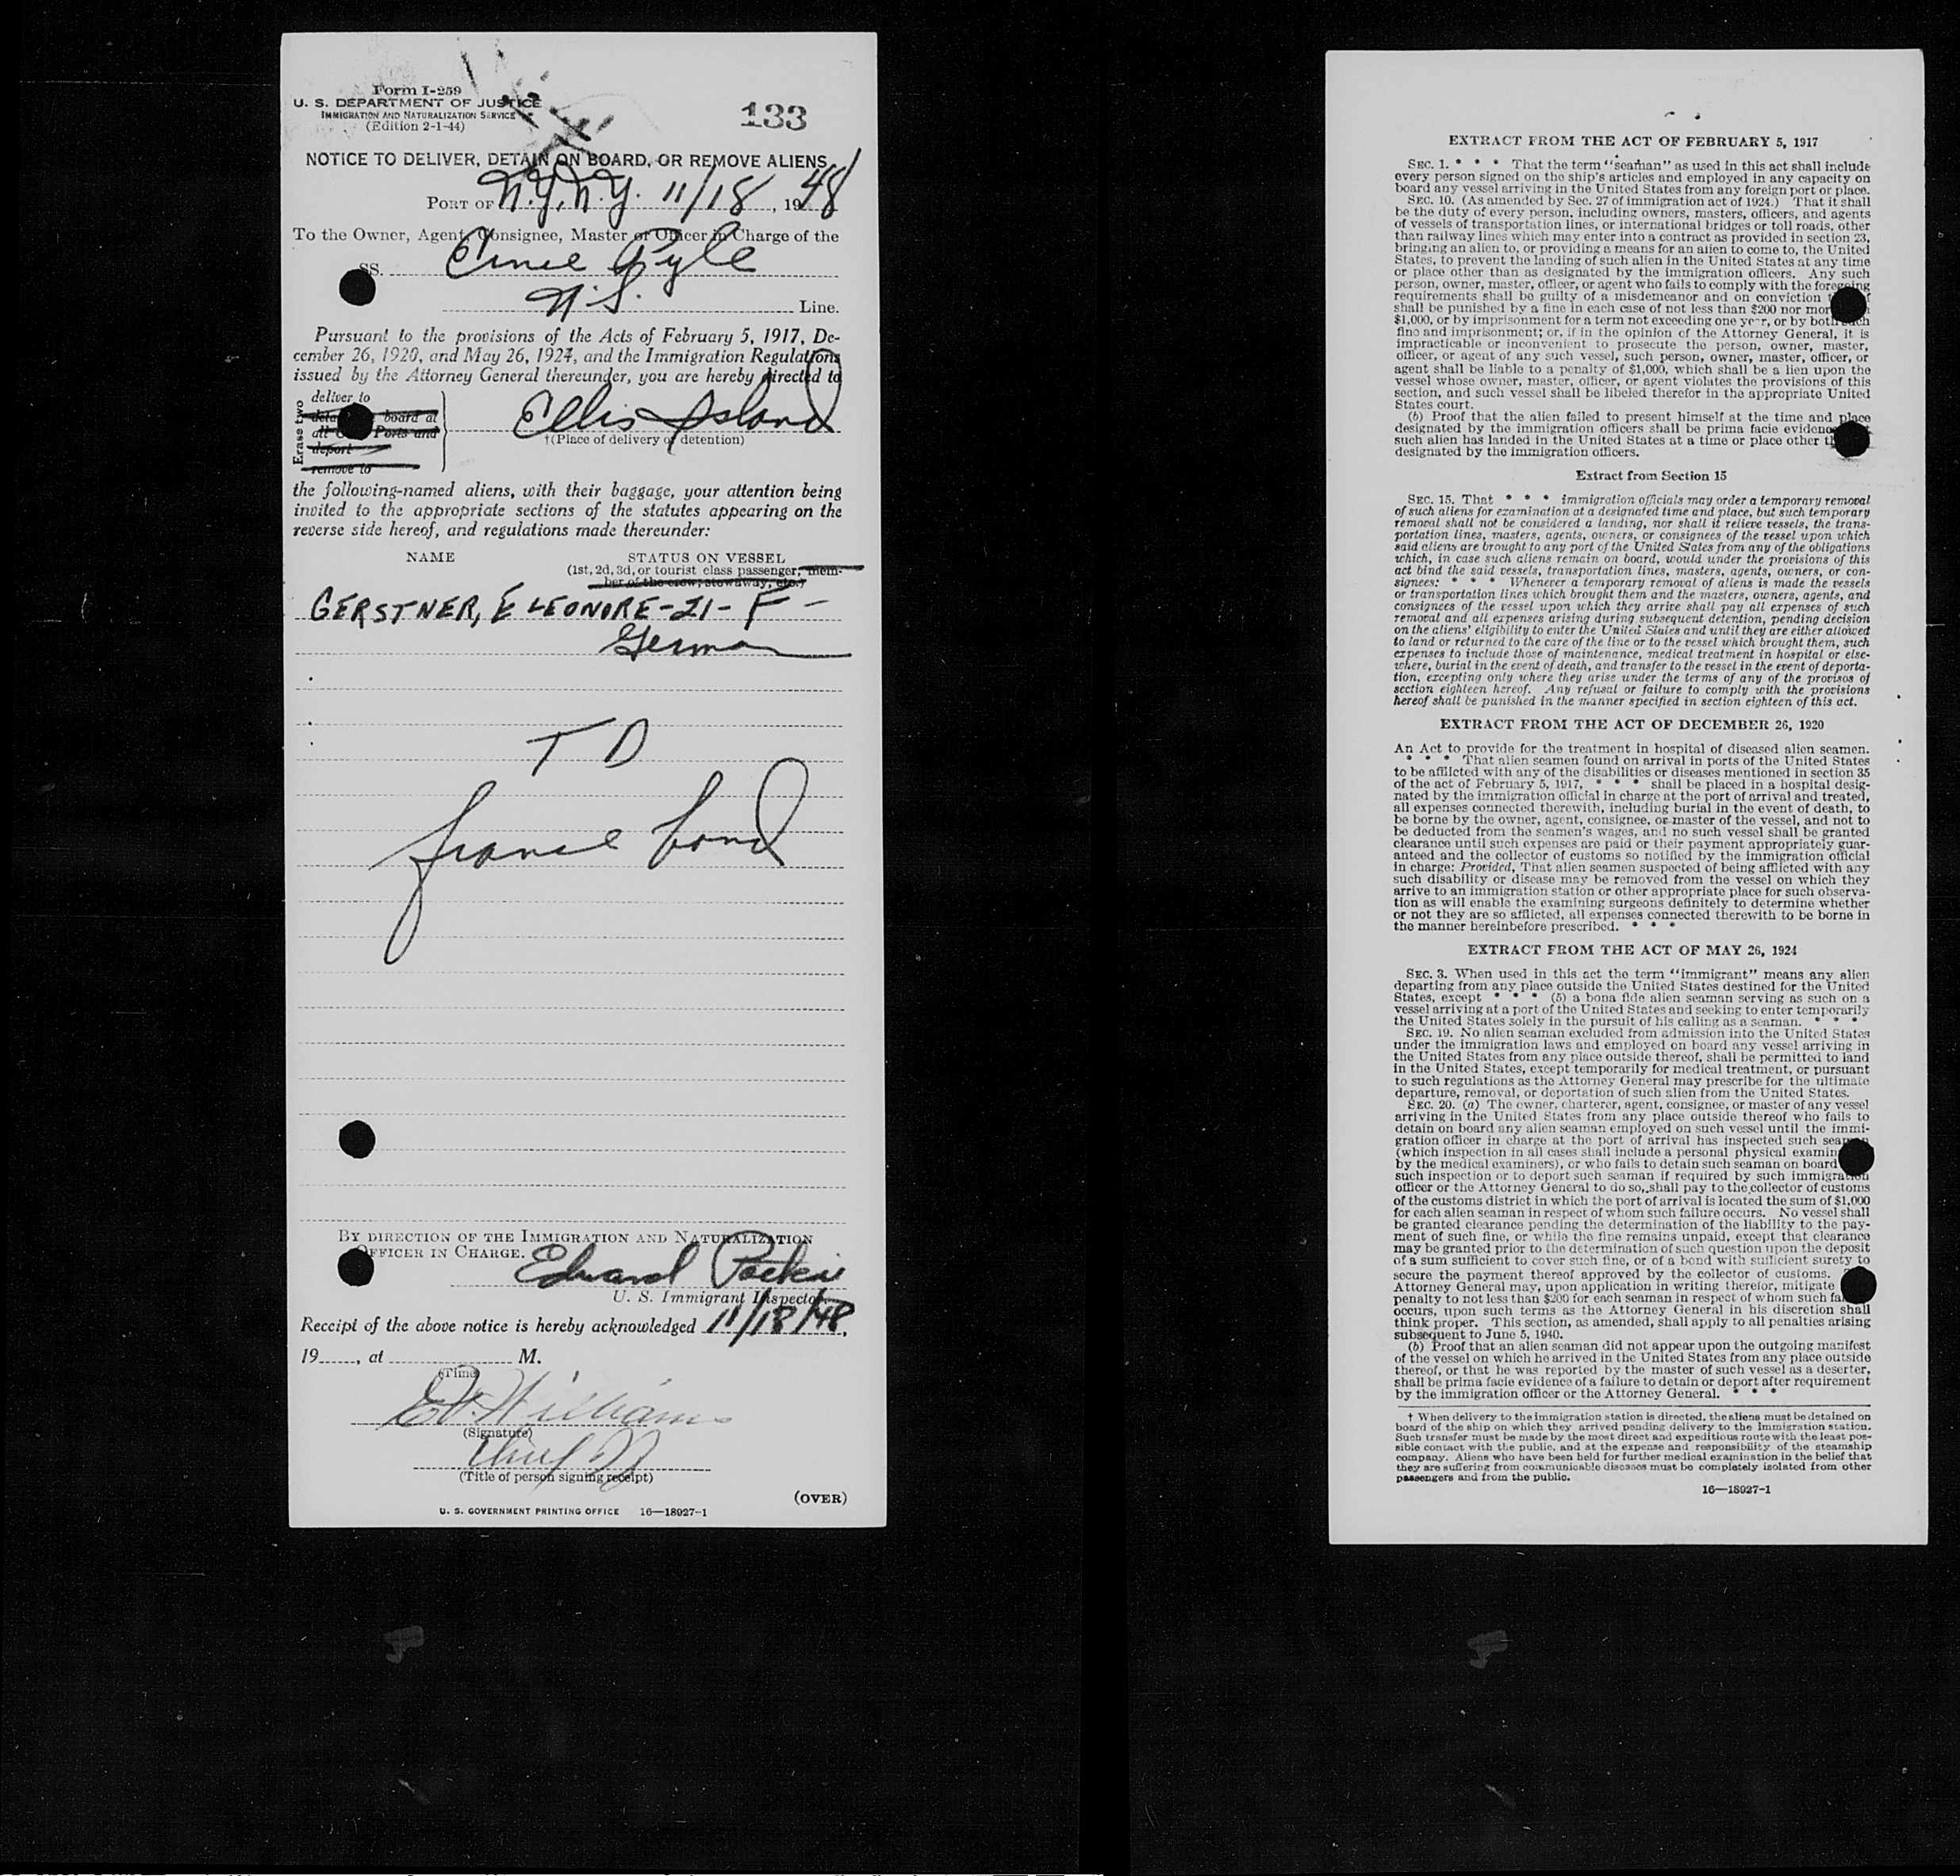 Form I-259
U. S. DEPARTMENT OF JUSTICE
IMMIGRATION AND NATURALIZATION SERVICE
(Edition 2-1-44)
133
NOTICE TO DELIVER, DETAIN ON BOARD, OR REMOVE ALIENS
PORT OF N.Y., N.Y. 11/18, 1948
To the Owner, Agent, Consignee, Master or Officer in Charge of the
SS. Ernie Pyle
Line.
Pursuant to the provisions of the Acts of February 5, 1917, De-
cember 26, 1920, and May 26, 1924, and the Immigration Regulations
issued by the Attorney General thereunder, you are hereby directed to
Erase two
deliver to
board at
all Ports and
deport
remove to
Ellis Island
†(Place of delivery or detention)
the following-named aliens, with their baggage, your attention being
invited to the appropriate sections of the statutes appearing on the
reverse side hereof, and regulations made thereunder:
NAME STATUS ON VESSEL
(1st, 2d, 3d, or tourist class passenger, mem-
ber of the crew, stowaway, etc.)
GERSTNER, ELEONORE-21-F-
German
T D
bond
BY DIRECTION OF THE IMMIGRATION AND NATURALIZATION
OFFICER IN CHARGE.
Edward
U. S. Immigrant Inspector.
Receipt of the above notice is hereby acknowledged 11/18/48,
19____, at ____ M.
(Time)
Williams
(Signature)
(Title of person signing receipt)
(OVER)
U. S. GOVERNMENT PRINTING OFFICE 16—18927-1
EXTRACT FROM THE ACT OF FEBRUARY 5, 1917
SEC. 1. * * * That the term "seaman" as used in this act shall include
every person signed on the ship's articles and employed in any capacity on
board any vessel arriving in the United States from any foreign port or place.
SEC. 10. (As amended by Sec. 27 of immigration act of 1924.) That it shall
be the duty of every person, including owners, masters, officers, and agents
of vessels of transportation lines, or international bridges or toll roads, other
than railway lines which may enter into a contract as provided in section 23,
bringing an alien to, or providing a means for an alien to come to, the United
States, to prevent the landing of such alien in the United States at any time
or place other than as designated by the immigration officers. Any such
person, owner, master, officer, or agent who fails to comply with the foregoing
requirements shall be guilty of a misdemeanor and on conviction
shall be punished by a fine in each case of not less than $200 nor more
$1,000, or by imprisonment for a term not exceeding one year, or by both such
fine and imprisonment; or, if in the opinion of the Attorney General, it is
impracticable or inconvenient to prosecute the person, owner, master,
officer, or agent of any such vessel, such person, owner, master, officer, or
agent shall be liable to a penalty of $1,000, which shall be a lien upon the
vessel whose owner, master, officer, or agent violates the provisions of this
section, and such vessel shall be libeled therefor in the appropriate United
States court.
(b) Proof that the alien failed to present himself at the time and place
designated by the immigration officers shall be prima facie evidence
such alien has landed in the United States at a time or place other
designated by the immigration officers.
Extract from Section 15
SEC. 15. That * * * immigration officials may order a temporary removal
of such aliens for examination at a designated time and place, but such temporary
removal shall not be considered a landing, nor shall it relieve vessels, the trans-
portation lines, masters, agents, owners, or consignees of the vessel upon which
said aliens are brought to any port of the United States from any of the obligations
which, in case such aliens remain on board, would under the provisions of this
act bind the said vessels, transportation lines, masters, agents, owners, or con-
signees: * * * Whenever a temporary removal of aliens is made the vessels
or transportation lines which brought them and the masters, owners, agents, and
consignees of the vessel upon which they arrive shall pay all expenses of such
removal and all expenses arising during subsequent detention, pending decision
on the aliens' eligibility to enter the United States and until they are either allowed
to land or returned to the care of the line or to the vessel which brought them, such
expenses to include those of maintenance, medical treatment in hospital or else-
where, burial in the event of death, and transfer to the vessel in the event of deporta-
tion, excepting only where they arise under the terms of any of the provisos of
section eighteen hereof. Any refusal or failure to comply with the provisions
hereof shall be punished in the manner specified in section eighteen of this act.
EXTRACT FROM THE ACT OF DECEMBER 26, 1920
An Act to provide for the treatment in hospital of diseased alien seamen.
* * * That alien seamen found on arrival in ports of the United States
to be afflicted with any of the disabilities or diseases mentioned in section 35
of the act of February 5, 1917, * * * shall be placed in a hospital desig-
nated by the immigration official in charge at the port of arrival and treated,
all expenses connected therewith, including burial in the event of death, to
be borne by the owner, agent, consignee, or master of the vessel, and not to
be deducted from the seamen's wages, and no such vessel shall be granted
clearance until such expenses are paid or their payment appropriately guar-
anteed and the collector of customs so notified by the immigration official
in charge: Provided, That alien seamen suspected of being afflicted with any
such disability or disease may be removed from the vessel on which they
arrive to an immigration station or other appropriate place for such observa-
tion as will enable the examining surgeons definitely to determine whether
or not they are so afflicted, all expenses connected therewith to be borne in
the manner hereinbefore prescribed. * * *
EXTRACT FROM THE ACT OF MAY 26, 1924
SEC. 3. When used in this act the term "immigrant" means any alien
departing from any place outside the United States destined for the United
States, except * * * (5) a bona fide alien seaman serving as such on a
vessel arriving at a port of the United States and seeking to enter temporarily
the United States solely in the pursuit of his calling as a seaman. * * *
SEC. 19. No alien seaman excluded from admission into the United States
under the immigration laws and employed on board any vessel arriving in
the United States from any place outside thereof, shall be permitted to land
in the United States, except temporarily for medical treatment, or pursuant
to such regulations as the Attorney General may prescribe for the ultimate
departure, removal, or deportation of such alien from the United States.
SEC. 20. (a) The owner, charterer, agent, consignee, or master of any vessel
arriving in the United States from any place outside thereof who fails to
detain on board any alien seaman employed on such vessel until the immi-
gration officer in charge at the port of arrival has inspected such seaman
(which inspection in all cases shall include a personal physical examin
by the medical examiners), or who fails to detain such seaman on board
such inspection or to deport such seaman if required by such immigration
officer or the Attorney General to do so, shall pay to the collector of customs
of the customs district in which the port of arrival is located the sum of $1,000
for each alien seaman in respect of whom such failure occurs. No vessel shall
be granted clearance pending the determination of the liability to the pay-
ment of such fine, or while the fine remains unpaid, except that clearance
may be granted prior to the determination of such question upon the deposit
of a sum sufficient to cover such fine, or of a bond with sufficient surety to
secure the payment thereof approved by the collector of customs.
Attorney General may, upon application in writing therefor, mitigate
penalty to not less than $200 for each seaman in respect of whom such
occurs, upon such terms as the Attorney General in his discretion shall
think proper. This section, as amended, shall apply to all penalties arising
subsequent to June 5, 1940.
(b) Proof that an alien seaman did not appear upon the outgoing manifest
of the vessel on which he arrived in the United States from any place outside
thereof, or that he was reported by the master of such vessel as a deserter,
shall be prima facie evidence of a failure to detain or deport after requirement
by the immigration officer or the Attorney General. * * *
† When delivery to the immigration station is directed, the aliens must be detained on
board of the ship on which they arrived pending delivery to the Immigration station.
Such transfer must be made by the most direct and expeditious route with the least pos-
sible contact with the public, and at the expense and responsibility of the steamship
company. Aliens who have been held for further medical examination in the belief that
they are suffering from communicable diseases must be completely isolated from other
passengers and from the public.
16—18927-1